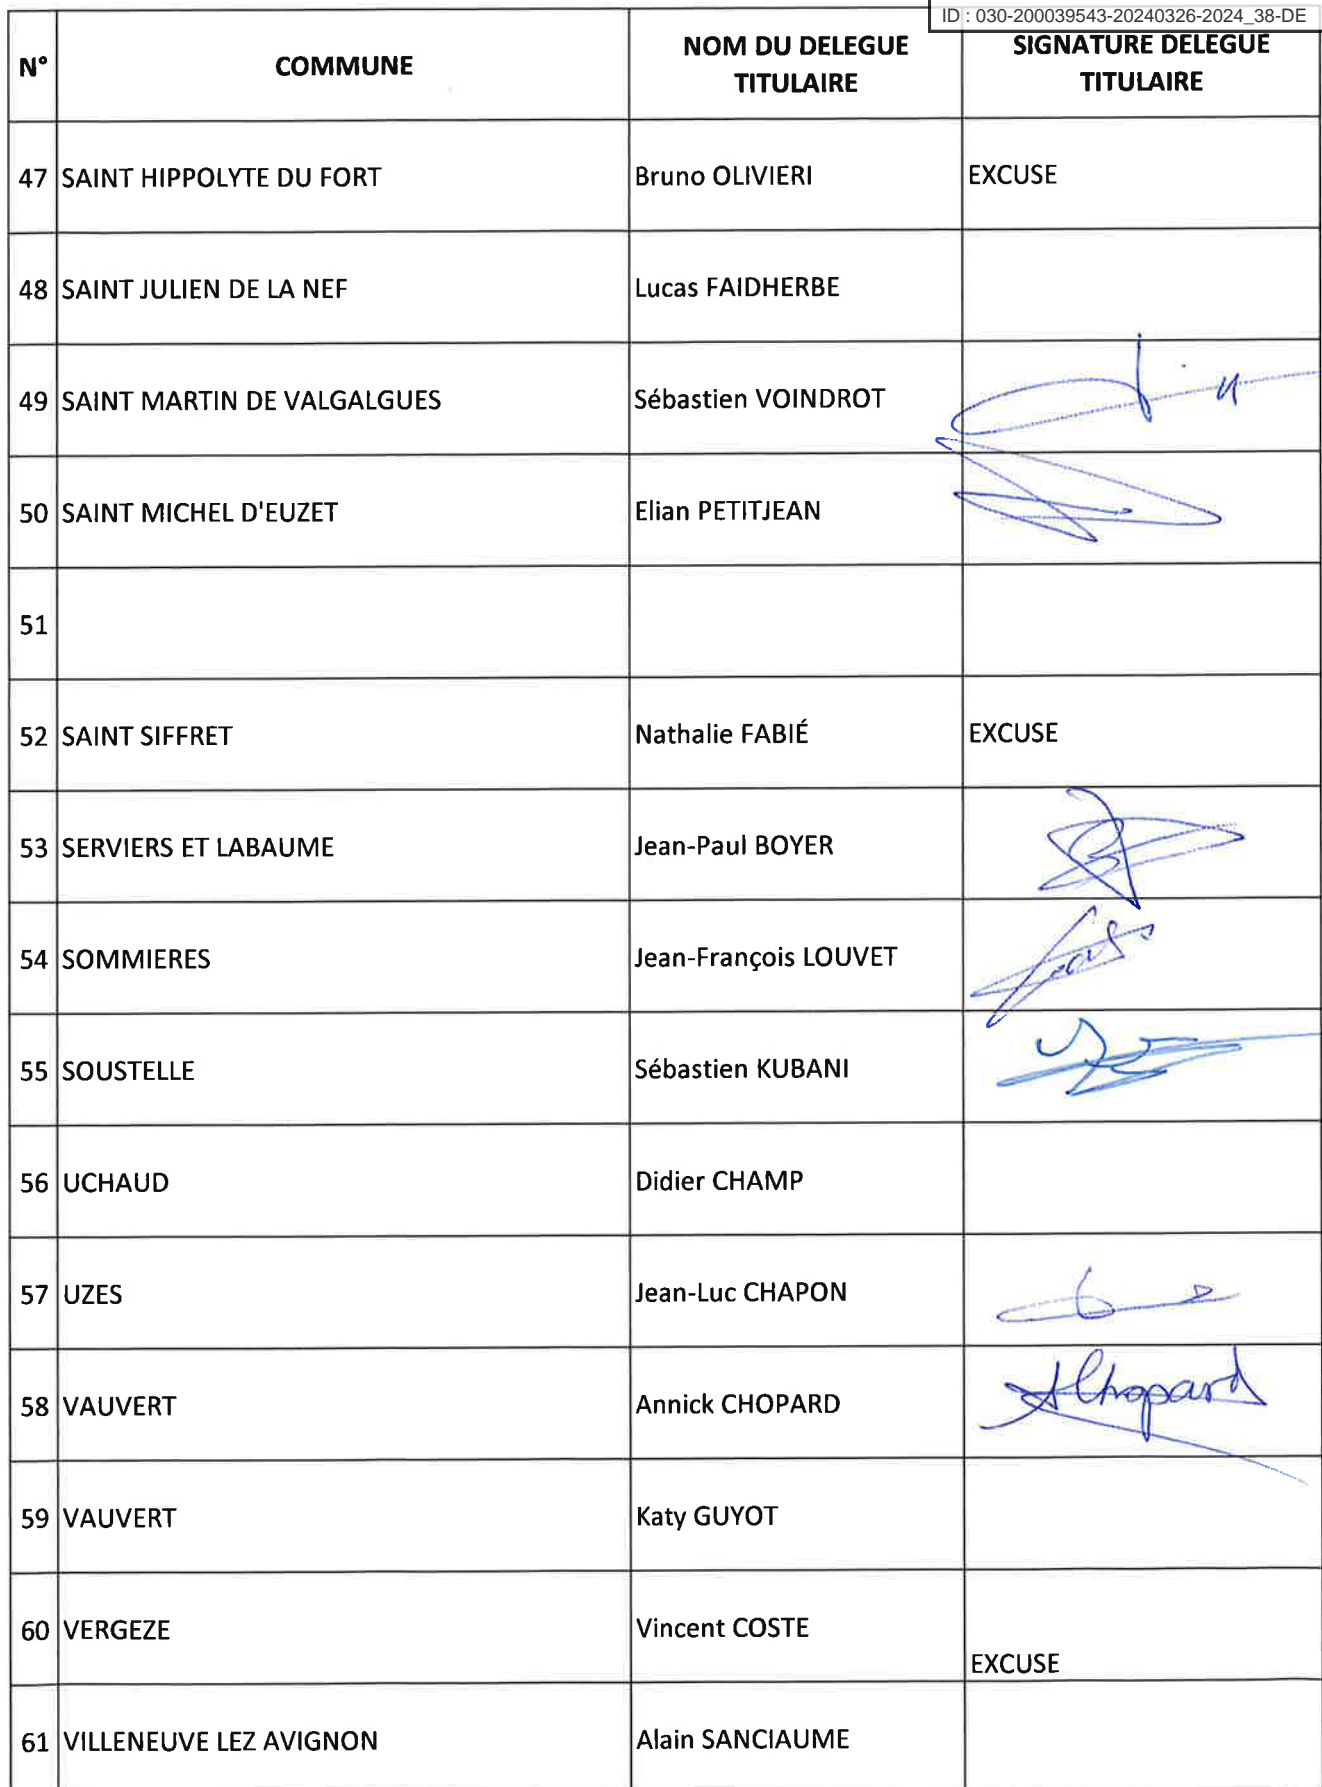 ID : 030-200039543-20240326-2024_38-DE
N° COMMUNE NOM DU DELEGUE TITULAIRE SIGNATURE DELEGUE TITULAIRE
47 SAINT HIPPOLYTE DU FORT Bruno OLIVIERI EXCUSE
48 SAINT JULIEN DE LA NEF Lucas FAIDHERBE
49 SAINT MARTIN DE VALGALGUES Sébastien VOINDROT
50 SAINT MICHEL D'EUZET Elian PETITJEAN
51
52 SAINT SIFFRET Nathalie FABIÉ EXCUSE
53 SERVIERS ET LABAUME Jean-Paul BOYER
54 SOMMIERES Jean-François LOUVET
55 SOUSTELLE Sébastien KUBANI
56 UCHAUD Didier CHAMP
57 UZES Jean-Luc CHAPON
58 VAUVERT Annick CHOPARD AChopard
59 VAUVERT Katy GUYOT
60 VERGEZE Vincent COSTE EXCUSE
61 VILLENEUVE LEZ AVIGNON Alain SANCIAUME